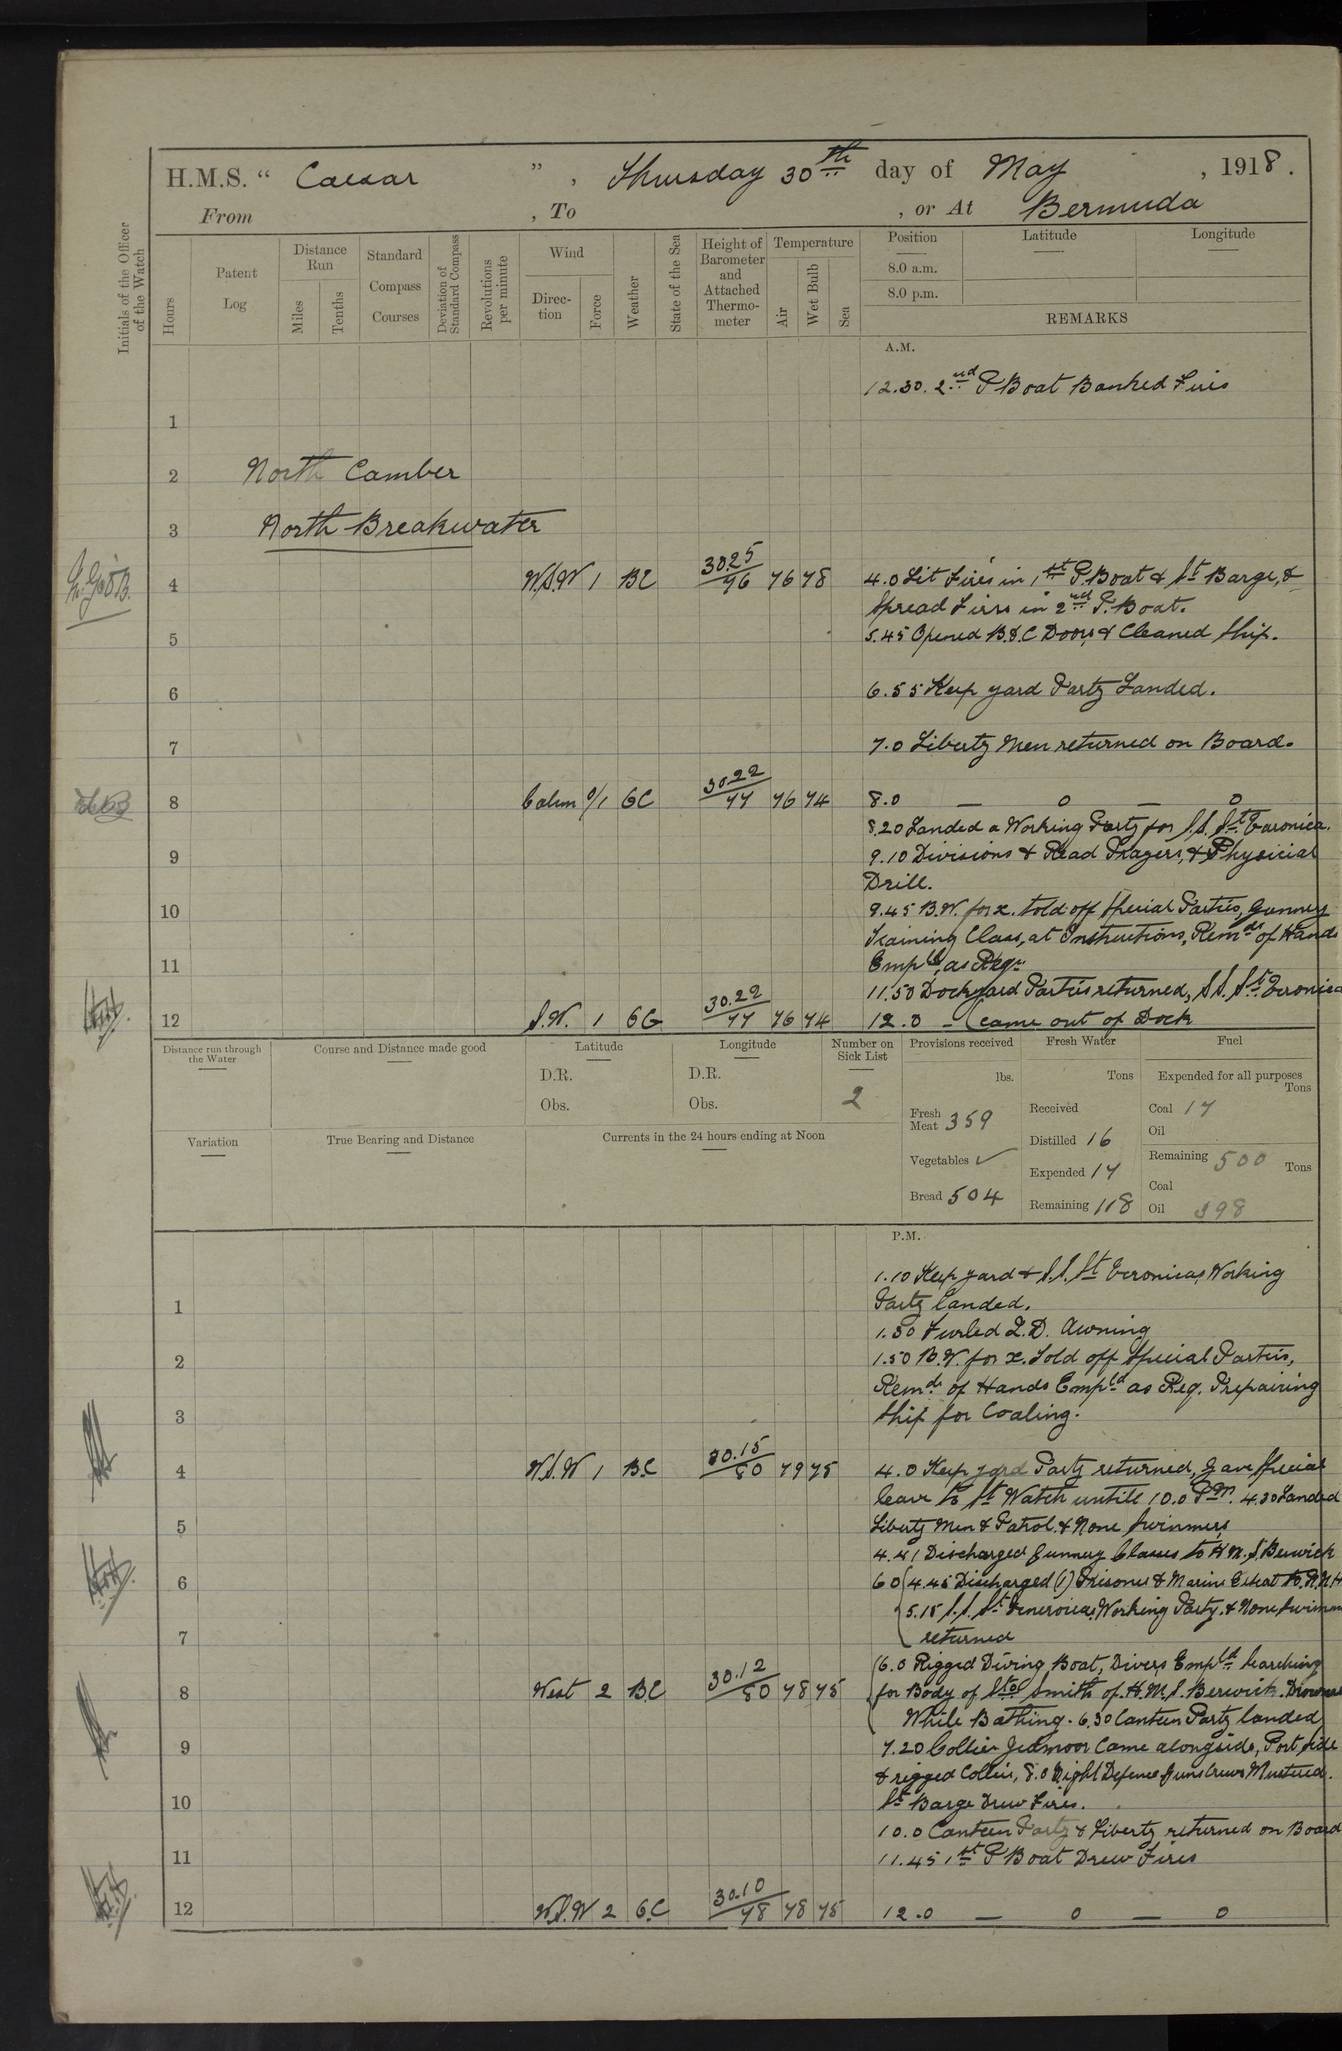 H.M.S. “ Caesar ” , Thursday 30th day of May , 1918.
From , To , or At Bermuda
Initials of the Officer of the Watch
Hours
Patent Log
Distance Run
Miles
Tenths
Standard Compass Courses
Deviation of Standard Compass
Revolutions per minute
Wind
Direc-tion
Force
Weather
State of the Sea
Height of Barometer and Attached Thermo-meter
Temperature
Air
Wet Bulb
Sea
Position
Latitude
Longitude
8.0 a.m.
8.0 p.m.
REMARKS
A.M.
12.30. 2nd P Boat Banked Fires
1
2 North Camber
3 North Breakwater
4 W.S.W 1 BC 30.25 76 76 78 4.0 Lit Fires in 1st P. Boat & St Barge, &
Spread Fires in 2nd P. Boat.
5 5.45 Opened B.D.C Doors & Cleaned Ship.
6 6.55 Keep yard Party Landed.
7 7.0 Liberty Men returned on Board.
8 Calm 0/1 6C 30.22 77 76 74 8.0 — 0 — 0
8.20 Landed a Working Party for S.S. St Varonica.
9 9.10 Divisions & Read Prayers, & Physicial
Drill.
10 9.45 B.W. for x. told off Special Parties, Gunnery
Training Class, at Instructions, Remdr of Hands
11 Empld, as Req.
11.50 Dockyard Parties returned, S.S. St. Veronica
12 S.W. 1 6C 30.22 77 76 74 12.0 - (came out of Dock
Distance run through the Water
Course and Distance made good
Latitude
D.R.
Obs.
Longitude
D.R.
Obs.
Number on Sick List
2
Provisions received
lbs.
Fresh Meat 359
Vegetables ✓
Bread 504
Fresh Water
Tons
Received
Distilled 16
Expended 17
Remaining 118
Fuel
Expended for all purposes
Tons
Coal 17
Oil
Remaining 500 Tons
Coal
Oil 398
Variation
True Bearing and Distance
Currents in the 24 hours ending at Noon
P.M.
1.10 Keep yard & S.S. St Veronicas, Working
1 Party Landed.
1.30 Furled Q.D. Awning
2 1.50 B.W. for x. Told off Special Parties,
Remdr of Hands Empld as Req. Prepairing
3 Ship for Coaling.
4 W.S.W 1 B.C 30.15 80 79 75 4.0 Keep yard Party returned, Gave Special
leave to St Watch untill 10.0 P.M. 4.30 Landed
5 Liberty Men & Patrol. & None Swimmers
4.41 Discharged Gunnery Classes to H.M.S. Berwick
6 60 (4.45 Discharged (1) Prisoner & Marine Escort to R.N.H
5.15 S.S. St Veneroicas, Working Party. & None Swimmers
7 returned
(6.0 Rigged Diving Boat, Divers Empld Searching
8 West 2 BC 30.12 80 78 75 for Body of Sto Smith of H.M.S. Berwick. Drowned
While Bathing. 6.30 Canteen Party landed
9 7.20 Collier Jedmoor Came alongside, Port side
& rigged Collier, 8.0 Night Defence Guns Crews Mustered.
10 St Barge Drew Fires.
10.0 Canteen Party & Liberty returned on Board
11 11.45 1st P Boat Drew Fires
12 W.S.W 2 6.C 30.10 78 78 75 12.0 — 0 — 0